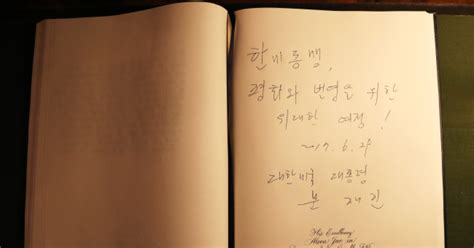 한미동맹,
평화와 번영을 위한
위대한 여정!
2017. 6. 28
대한민국 대통령
문 재 인
His Excellency
Moon Jae-in